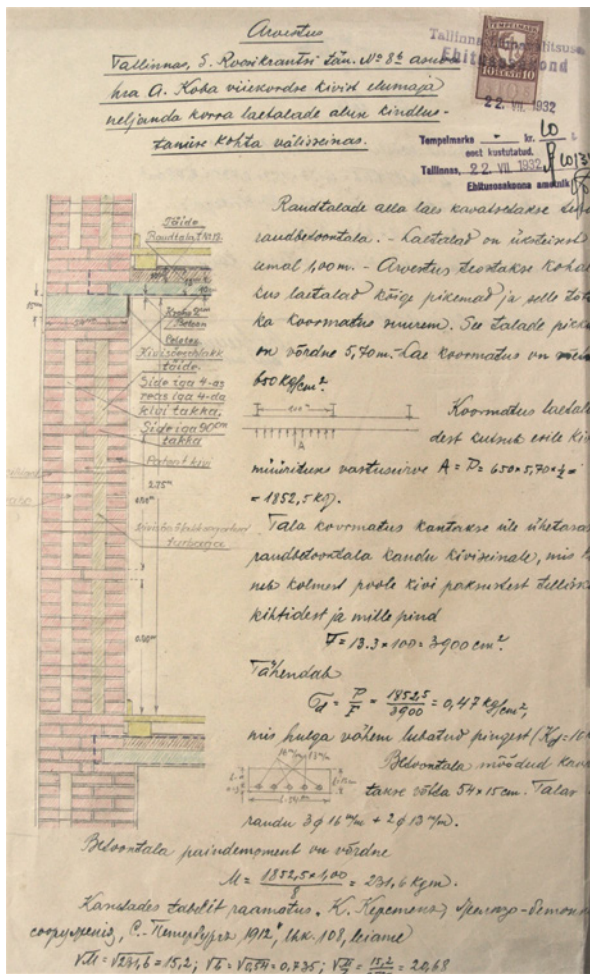 Arvestus
Tallinnas, S. Roosikrantsi tän. № 8b asuva
hra A. Koba viiekordse kivist elumaja
neljanda korra laetalade aluse kindlus-
tamise kohta välisseinas.
Tallinna Linnavalitsuse
Ehitusosakond
TEMPELMARK
10 SENTI 10
22. VII. 1932
Tempelmarke kr. 10 s.
eest kustutatud.
Tallinnas, 22. VII. 1932
Ehitusosakonna ametnik
Täide
Raudtala
Krohv
Betoon
Kivisöeschlakk
täide.
Side iga 4-as
reas iga 4-da
kivi takka.
Side iga 90cm
takka
Patent kivi
2.75m
0.90m
0.90m
turbaga
Raudtalade alla laes kavatsetakse
raudbetoontala. – Laetalad on üksteisest
emal 1,00m. – Arvestus teostakse kohal
kus laetalad kõige pikemad ja selle tõt
ka koormatus suurem. See talade pikk
on võrdne 5,70m. Lae koormatus on
650 kg/cm².
100cm
A
Koormatus laetala
dest kutsub esile
müürituse vastusurve A = P = 650×5,70×½ =
= 1852,5 kg.
Tala koormatus kantakse üle ühetasa
raudbetoontala kaudu kiviseinale, mis
neb kolmest poole kivi paksustest tellis
kihtidest ja mille pind
F = 13.3 × 100 = 3900 cm².
Tähendab
σd = P/F = 1852,5/3900 = 0,47 kg/cm²,
mis hulga vähem lubatud pingest (Kd=
16 m/m 13 m/m
Betoontala mõõdud kavat
takse võtta 54 × 15 cm. Talas
raudu 3ϕ 16 m/m + 2ϕ 13 m/m.
Betoontala paindemoment on võrdne
M = 1852,5 × 1,00 / 8 = 231,6 kgm.
Kasutades tabelit raamatus, К. Керстенъ, Железо-бетонн
сооруженія, С.-Петербургъ 1912, lhk. 108, leiame
√M = √231,6 = 15,2; √b = √0,54 = 0,735; = 15,2 = 20,68